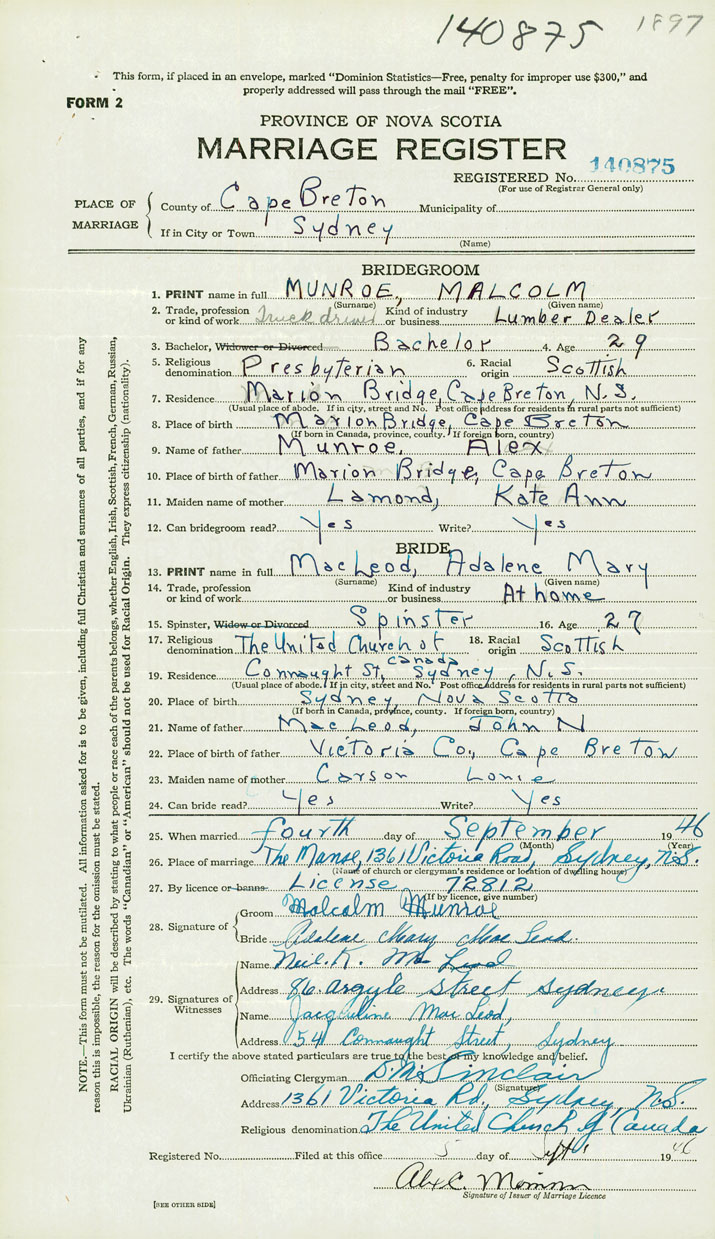 140875 1897
This form, if placed in an envelope, marked "Dominion Statistics—Free, penalty for improper use $300," and
properly addressed will pass through the mail "FREE".
FORM 2
PROVINCE OF NOVA SCOTIA
MARRIAGE REGISTER
REGISTERED No. 140875
(For use of Registrar General only)
PLACE OF MARRIAGE
County of Cape Breton Municipality of
If in City or Town Sydney
(Name)
BRIDEGROOM
1. PRINT name in full MUNROE, MALCOLM
(Surname) (Given name)
2. Trade, profession or kind of work Truck driver Kind of industry or business Lumber Dealer
3. Bachelor, Widower or Divorced Bachelor 4. Age 29
5. Religious denomination Presbyterian 6. Racial origin Scottish
7. Residence Marion Bridge, Cape Breton, N.S.
(Usual place of abode. If in city, street and No. Post office address for residents in rural parts not sufficient)
8. Place of birth Marion Bridge, Cape Breton
(If born in Canada, province, county. If foreign born, country)
9. Name of father Munroe, Alex
10. Place of birth of father Marion Bridge, Cape Breton
11. Maiden name of mother Lamond, Kate Ann
12. Can bridegroom read? Yes Write? Yes
BRIDE
13. PRINT name in full MacLeod, Adalene Mary
(Surname) (Given name)
14. Trade, profession or kind of work Kind of industry or business At home
15. Spinster, Widow or Divorced Spinster 16. Age 27
17. Religious denomination The United Church of Canada 18. Racial origin Scottish
19. Residence Connaught St, Sydney, N.S.
(Usual place of abode. If in city, street and No. Post office address for residents in rural parts not sufficient)
20. Place of birth Sydney, Nova Scotia
(If born in Canada, province, county. If foreign born, country)
21. Name of father MacLeod, John N
22. Place of birth of father Victoria Co., Cape Breton
23. Maiden name of mother Carson
24. Can bride read? Yes Write? Yes
25. When married fourth day of September 1946
(Month) (Year)
26. Place of marriage The Manse, 1361 Victoria Road, Sydney, N.S.
(Name of church or clergyman's residence or location of dwelling house)
27. By licence or banns License 72812
(If by licence, give number)
28. Signature of
Groom Malcolm Munroe
Bride Adalene Mary MacLeod.
29. Signatures of Witnesses
Name Neil. K. McLeod
Address 86. Argyle Street Sydney.
Name Jacqueline MacLeod,
Address 54 Connaught Street, Sydney
I certify the above stated particulars are true to the best of my knowledge and belief.
Officiating Clergyman Sinclair
(Signature)
Address 1361 Victoria Rd., Sydney N.S.
Religious denomination The United Church of Canada
Registered No. Filed at this office 5 day of Sept 1946
Alex C.
Signature of Issuer of Marriage Licence
[SEE OTHER SIDE]
NOTE.—This form must not be mutilated. All information asked for is to be given, including full Christian and surnames of all parties, and if for any
reason this is impossible, the reason for the omission must be stated.
RACIAL ORIGIN will be described by stating to what people or race each of the parents belongs, whether English, Irish, Scottish, French, German, Russian,
Ukrainian (Ruthenian), etc. The words "Canadian" or "American" should not be used for Racial Origin. They express citizenship (nationality).